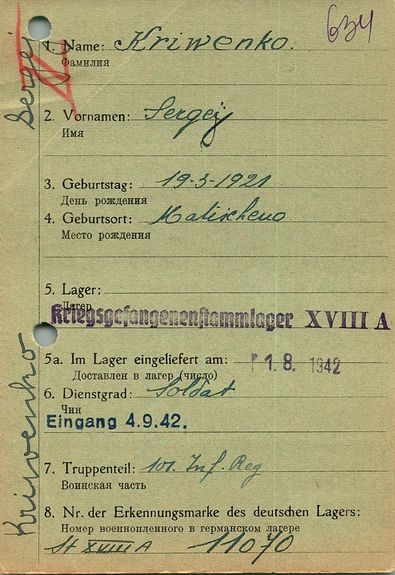 634
1. Name: Kriwenko.
Фамилия
2. Vornamen: Sergej
Имя
3. Geburtstag: 19-3-1921
День рождения
4. Geburtsort:
Место рождения
5. Lager:
Лагерь
Kriegsgefangenenstammlager XVIII A
5a. Im Lager eingeliefert am: 1. 8. 1942
Доставлен в лагер (число)
6. Dienstgrad: Soldat
Чин
Eingang 4.9.42.
7. Truppenteil: 101. Inf. Reg
Воинская часть
8. Nr. der Erkennungsmarke des deutschen Lagers:
Номер военнопленного в германском лагере
St XVIII A 11070
Kriwenko Sergej